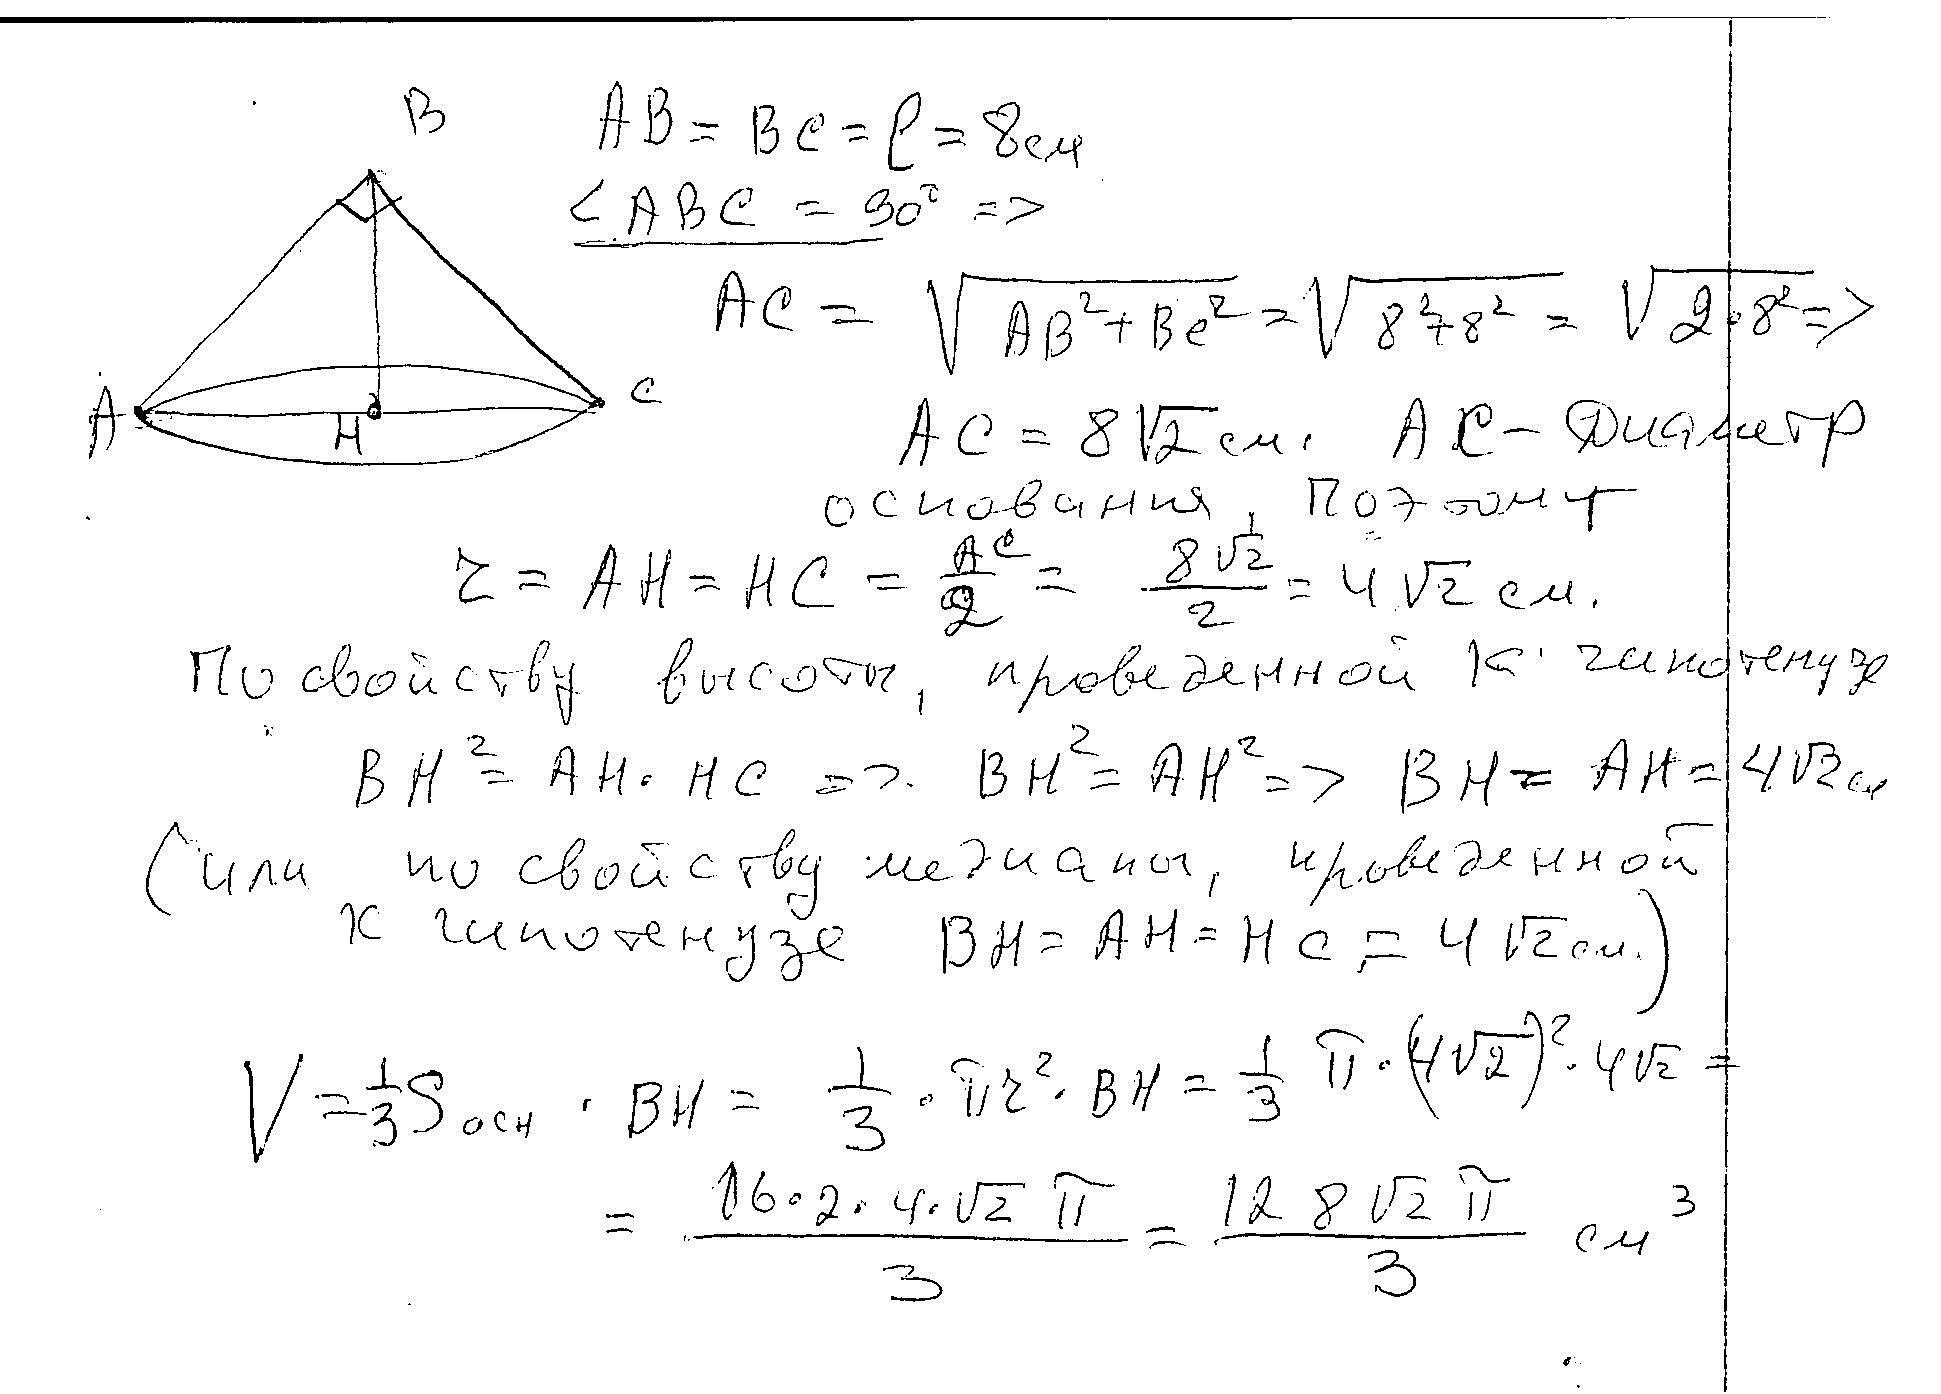 B
AB = BC = ℓ = 8см
∠ABC = 90° =>
AC = √(AB² + BC²) = √(8² + 8²) = √(2·8²) =>
A H C
AC = 8√2 см. AC – Диаметр
основания, Поэтому
r = AH = HC = AC/2 = 8√2/2 = 4√2 см.
По свойству высоты, проведенной к гипотенузе
BH² = AH · HC => BH² = AH² => BH = AH = 4√2 см
(или по свойству медианы, проведенной
к гипотенузе BH = AH = HC = 4√2 см.)
V = 1/3 Sосн · BH = 1/3 · πr² · BH = 1/3 π · (4√2)² · 4√2 =
= 16·2·4·√2 π/3 = 128√2 π/3 см³